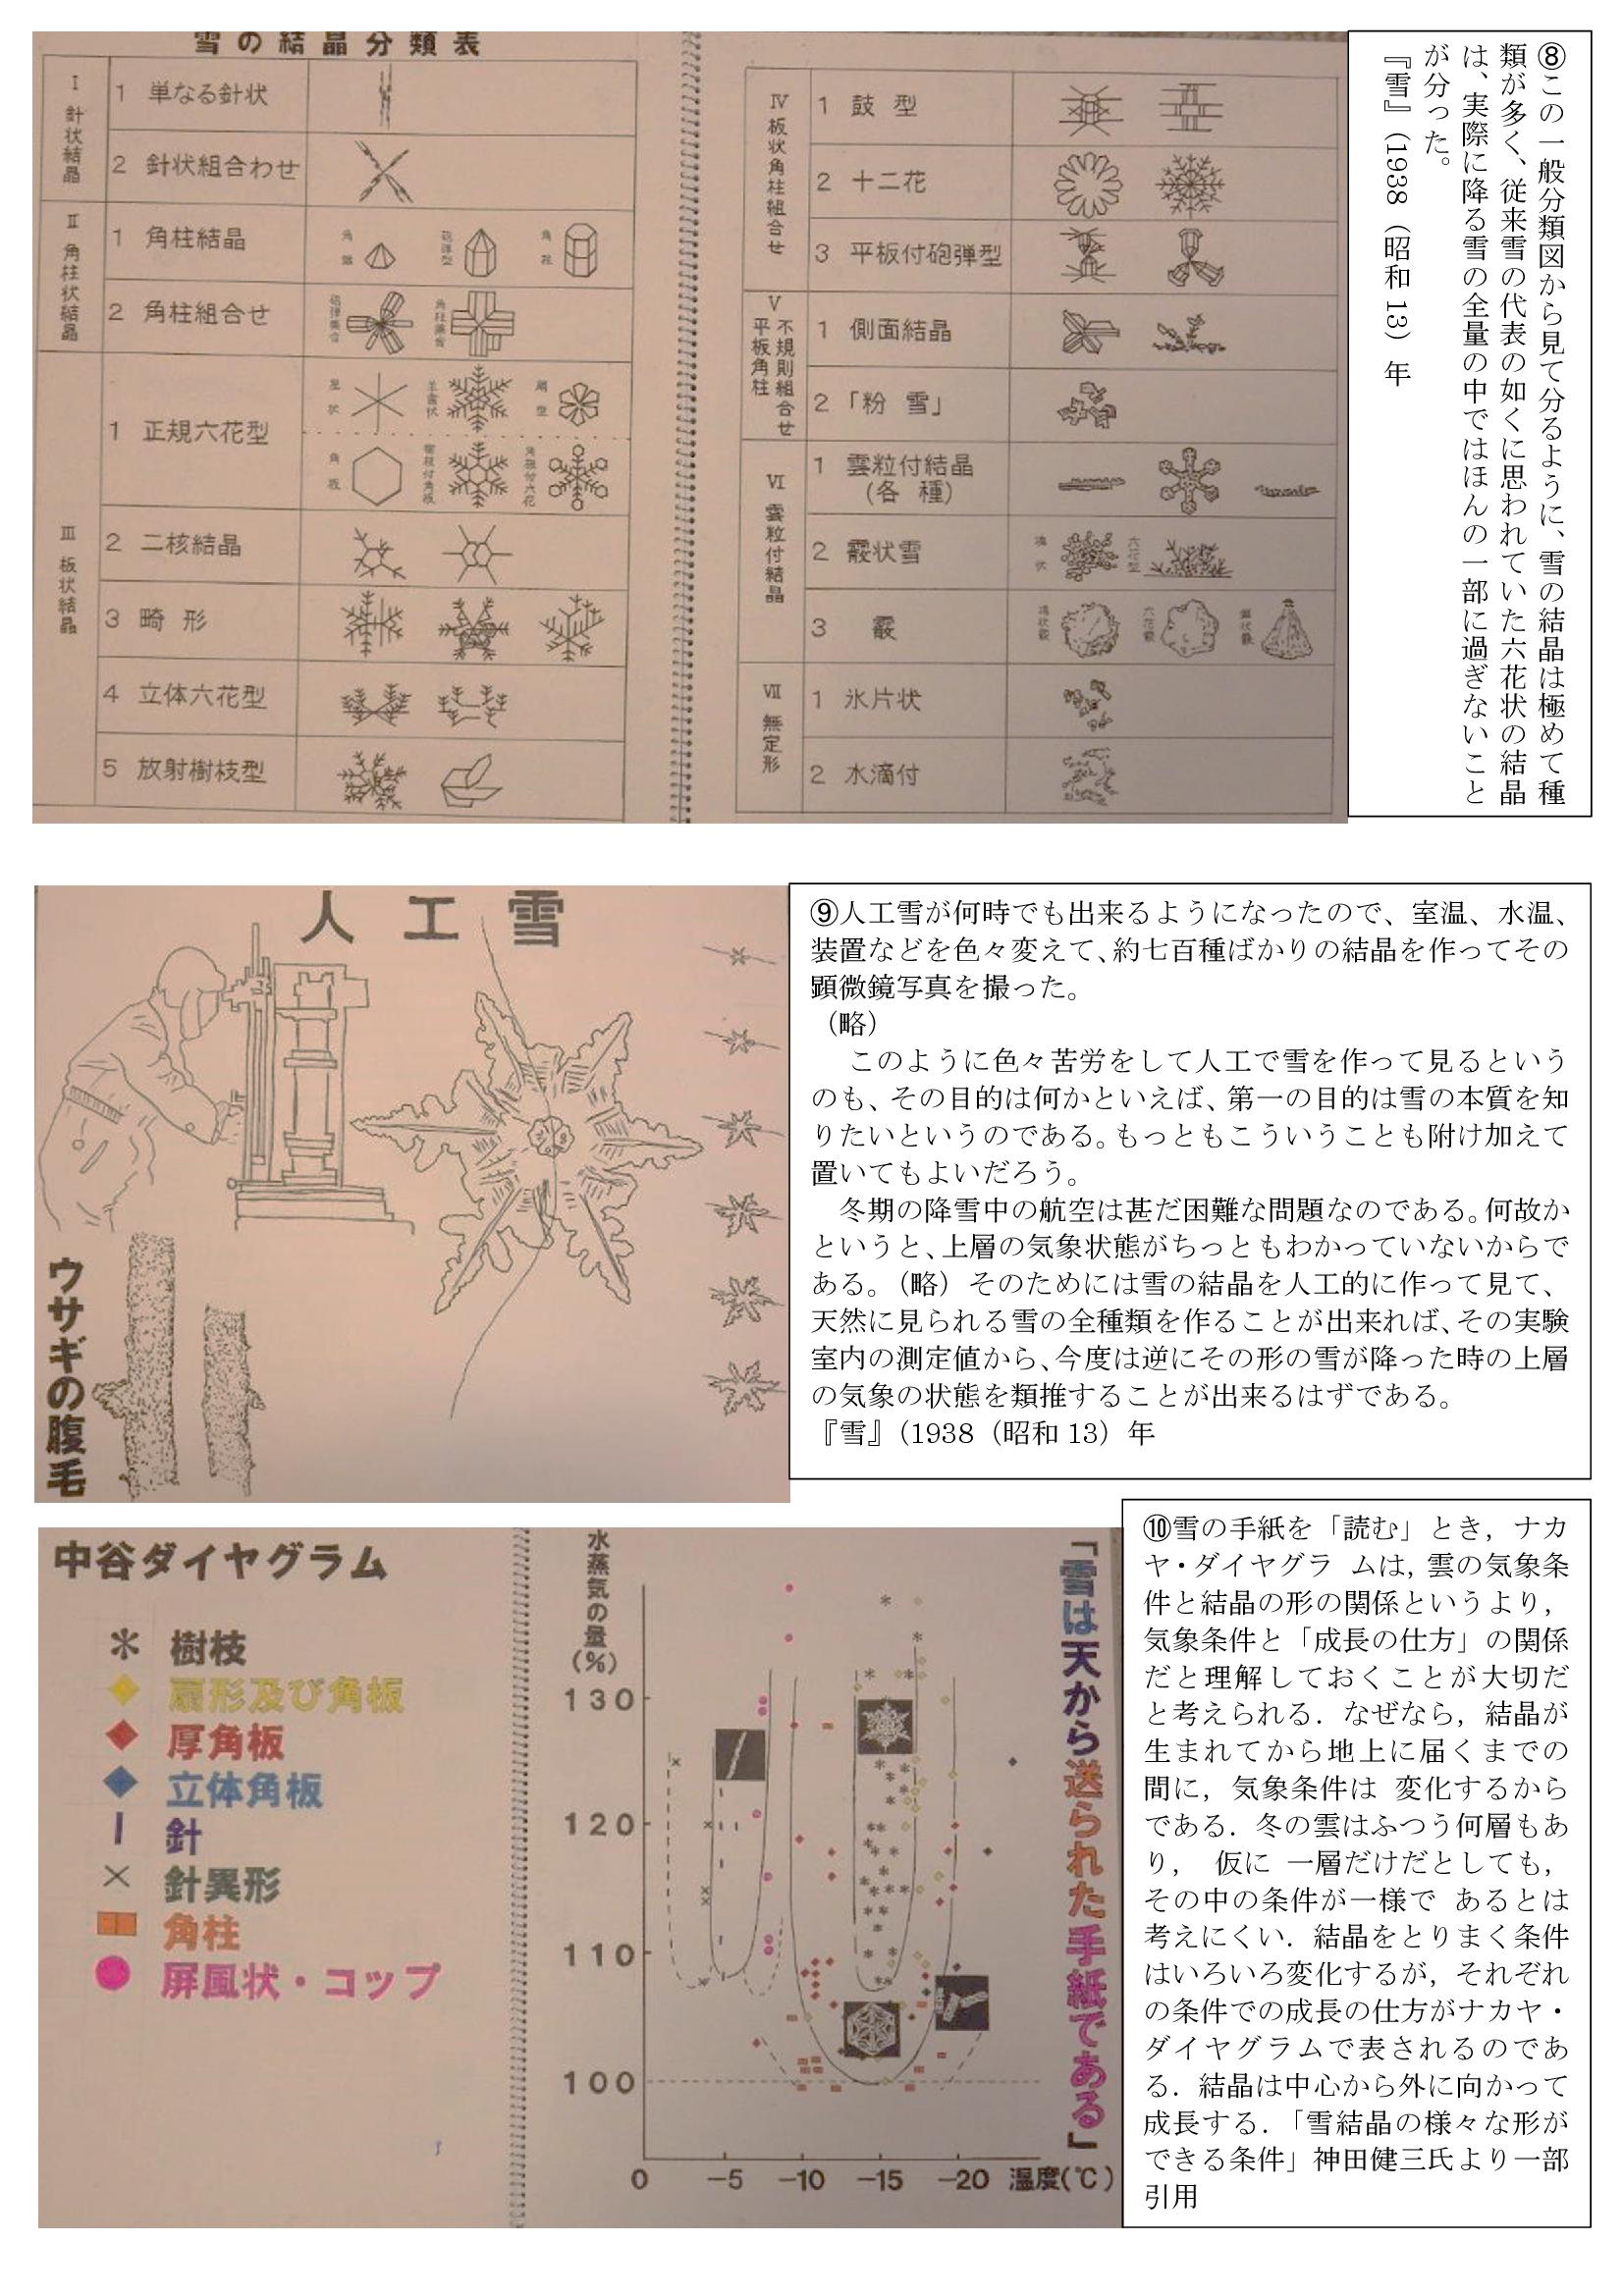 雪の結晶分類表
Ⅰ 針状結晶
1 単なる針状
2 針状組合わせ
Ⅱ 角柱状結晶
1 角柱結晶
角錐
砲弾型
角柱
2 角柱組合せ
砲弾集合
角柱集合
Ⅲ 板状結晶
1 正規六花型
星状
羊歯状
扇型
角板
樹枝付角板
角板付六花
2 二核結晶
3 畸形
4 立体六花型
5 放射樹枝型
Ⅳ 板状角柱組合せ
1 鼓型
2 十二花
3 平板付砲弾型
Ⅴ 不規則組合せ
平板角柱
1 側面結晶
2 「粉雪」
Ⅵ 雲粒付結晶
1 雲粒付結晶
(各種)
2 霰状雪
塊状
六花型
3 霰
塊状霰
六花霰
錐状霰
Ⅶ 無定形
1 氷片状
2 水滴付
⑧この一般分類図から見て分るように、雪の結晶は極めて種
類が多く、従来雪の代表の如くに思われていた六花状の結晶
は、実際に降る雪の全量の中ではほんの一部に過ぎないこと
が分った。
『雪』（1938（昭和 13）年
人工雪
ウサギの腹毛
⑨人工雪が何時でも出来るようになったので、室温、水温、
装置などを色々変えて、約七百種ばかりの結晶を作ってその
顕微鏡写真を撮った。
（略）
このように色々苦労をして人工で雪を作って見るという
のも、その目的は何かといえば、第一の目的は雪の本質を知
りたいというのである。もっともこういうことも附け加えて
置いてもよいだろう。
冬期の降雪中の航空は甚だ困難な問題なのである。何故か
というと、上層の気象状態がちっともわかっていないからで
ある。（略）そのためには雪の結晶を人工的に作って見て、
天然に見られる雪の全種類を作ることが出来れば、その実験
室内の測定値から、今度は逆にその形の雪が降った時の上層
の気象の状態を類推することが出来るはずである。
『雪』（1938（昭和 13）年
中谷ダイヤグラム
樹枝
扇形及び角板
厚角板
立体角板
針
針異形
角柱
屏風状・コップ
水蒸気の量(%)
130
120
110
100
0 −5 −10 −15 −20 温度(℃)
「雪は天から送られた手紙である」
⑩雪の手紙を「読む」とき，ナカ
ヤ・ダイヤグラ ムは，雲の気象条
件と結晶の形の関係というより，
気象条件と「成長の仕方」の関係
だと理解しておくことが大切だ
と考えられる．なぜなら，結晶が
生まれてから地上に届くまでの
間に，気象条件は 変化するから
である．冬の雲はふつう何層もあ
り， 仮に 一層だけだとしても，
その中の条件が一様で あるとは
考えにくい．結晶をとりまく条件
はいろいろ変化するが，それぞれ
の条件での成長の仕方がナカヤ・
ダイヤグラムで表されるのであ
る．結晶は中心から外に向かって
成長する．「雪結晶の様々な形が
できる条件」神田健三氏より一部
引用